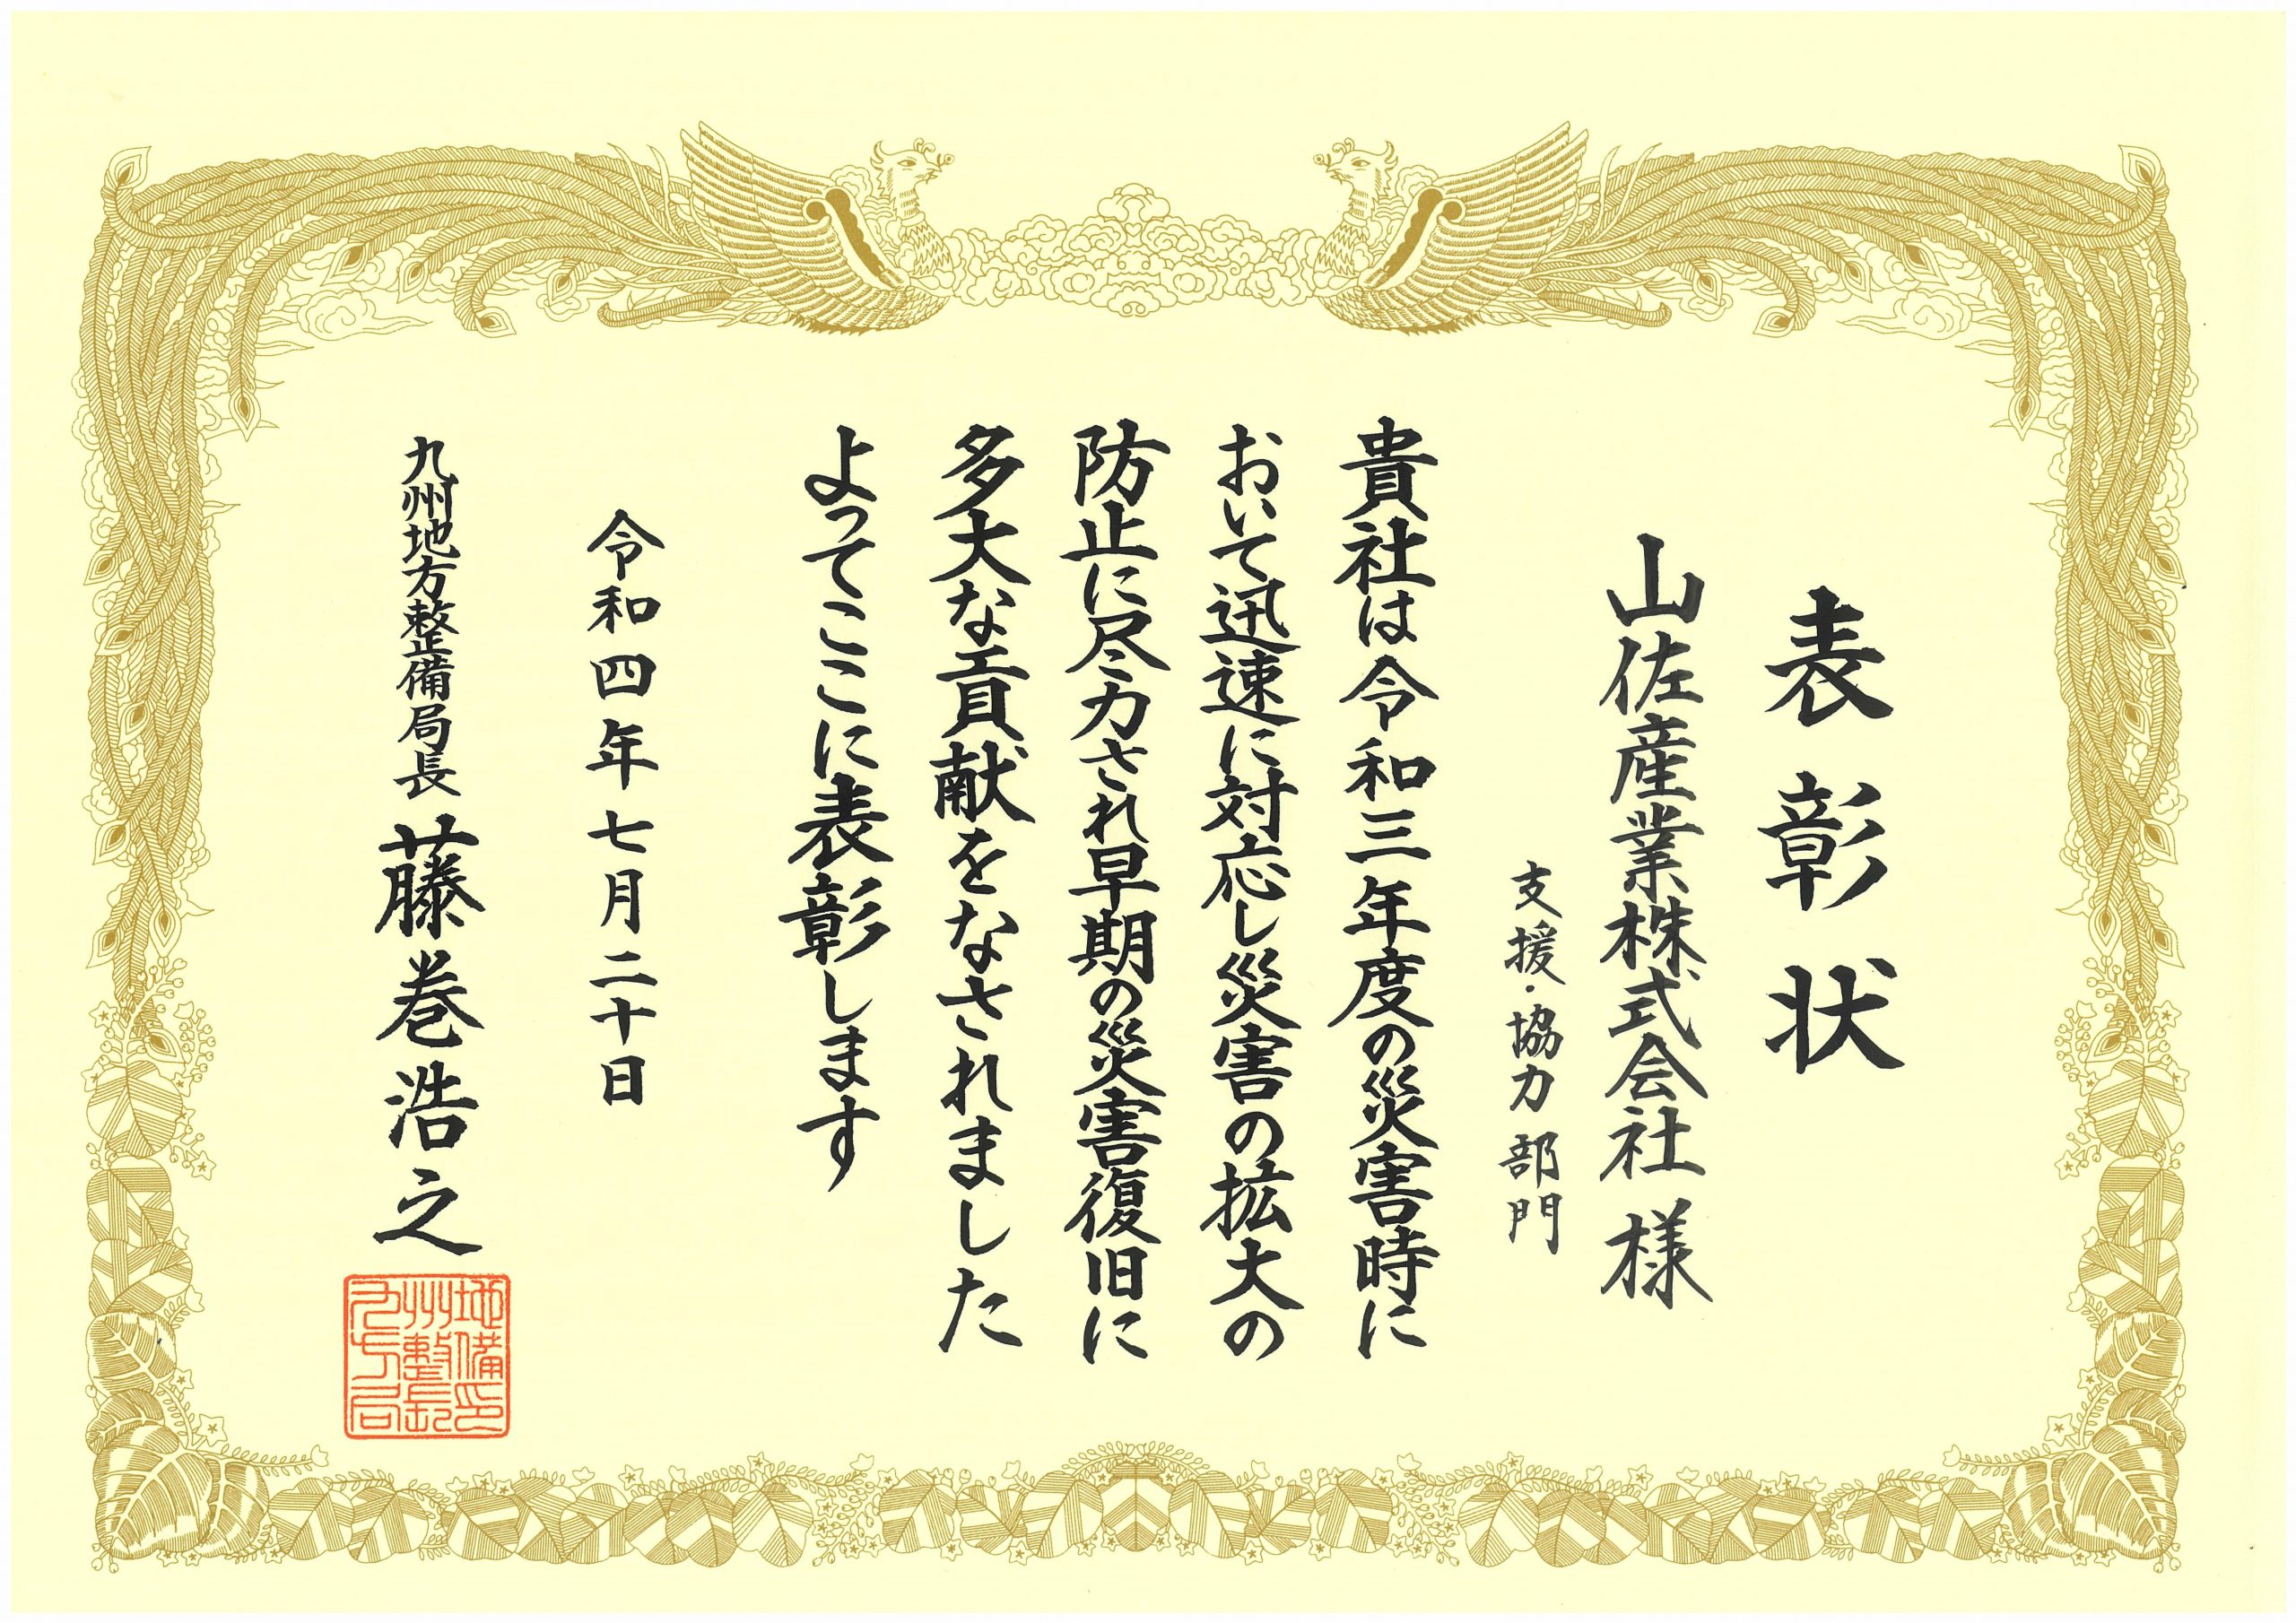 表彰状
山佐産業株式会社 様
支援・協力 部門
貴社は令和三年度の災害時に
おいて迅速に対応し災害の拡大の
防止に尽力され早期の災害復旧に
多大な貢献をなされました
よってここに表彰します
令和四年七月二十日
九州地方整備局長 藤巻浩之
地備印
州整長
九方局